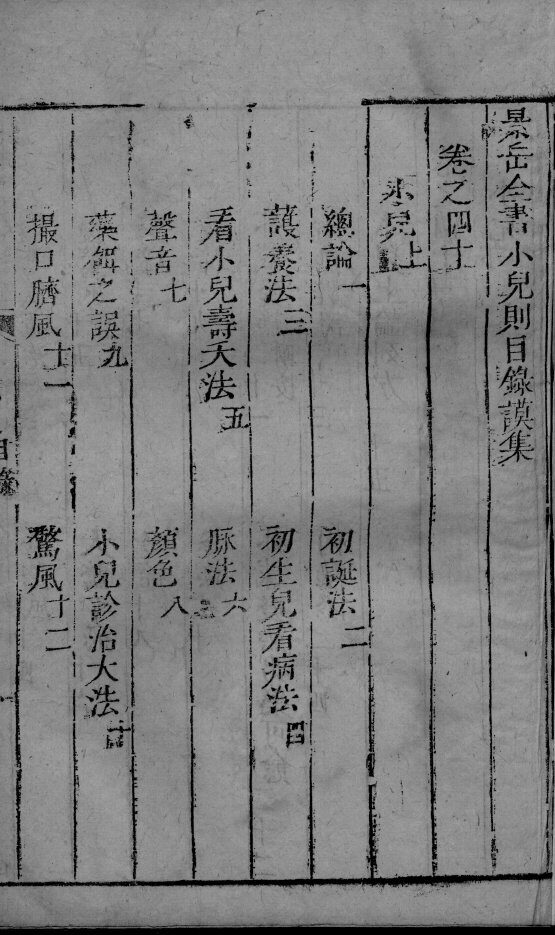 景岳全書小兒則目錄謨集
卷之四十
小兒上
總論一　初誕法二
護養法三　初生兒看病法四
看小兒壽夭法五　脉法六
聲音七　顏色八
藥餌之誤九　小兒診治大法十
撮口臍風十一　驚風十二